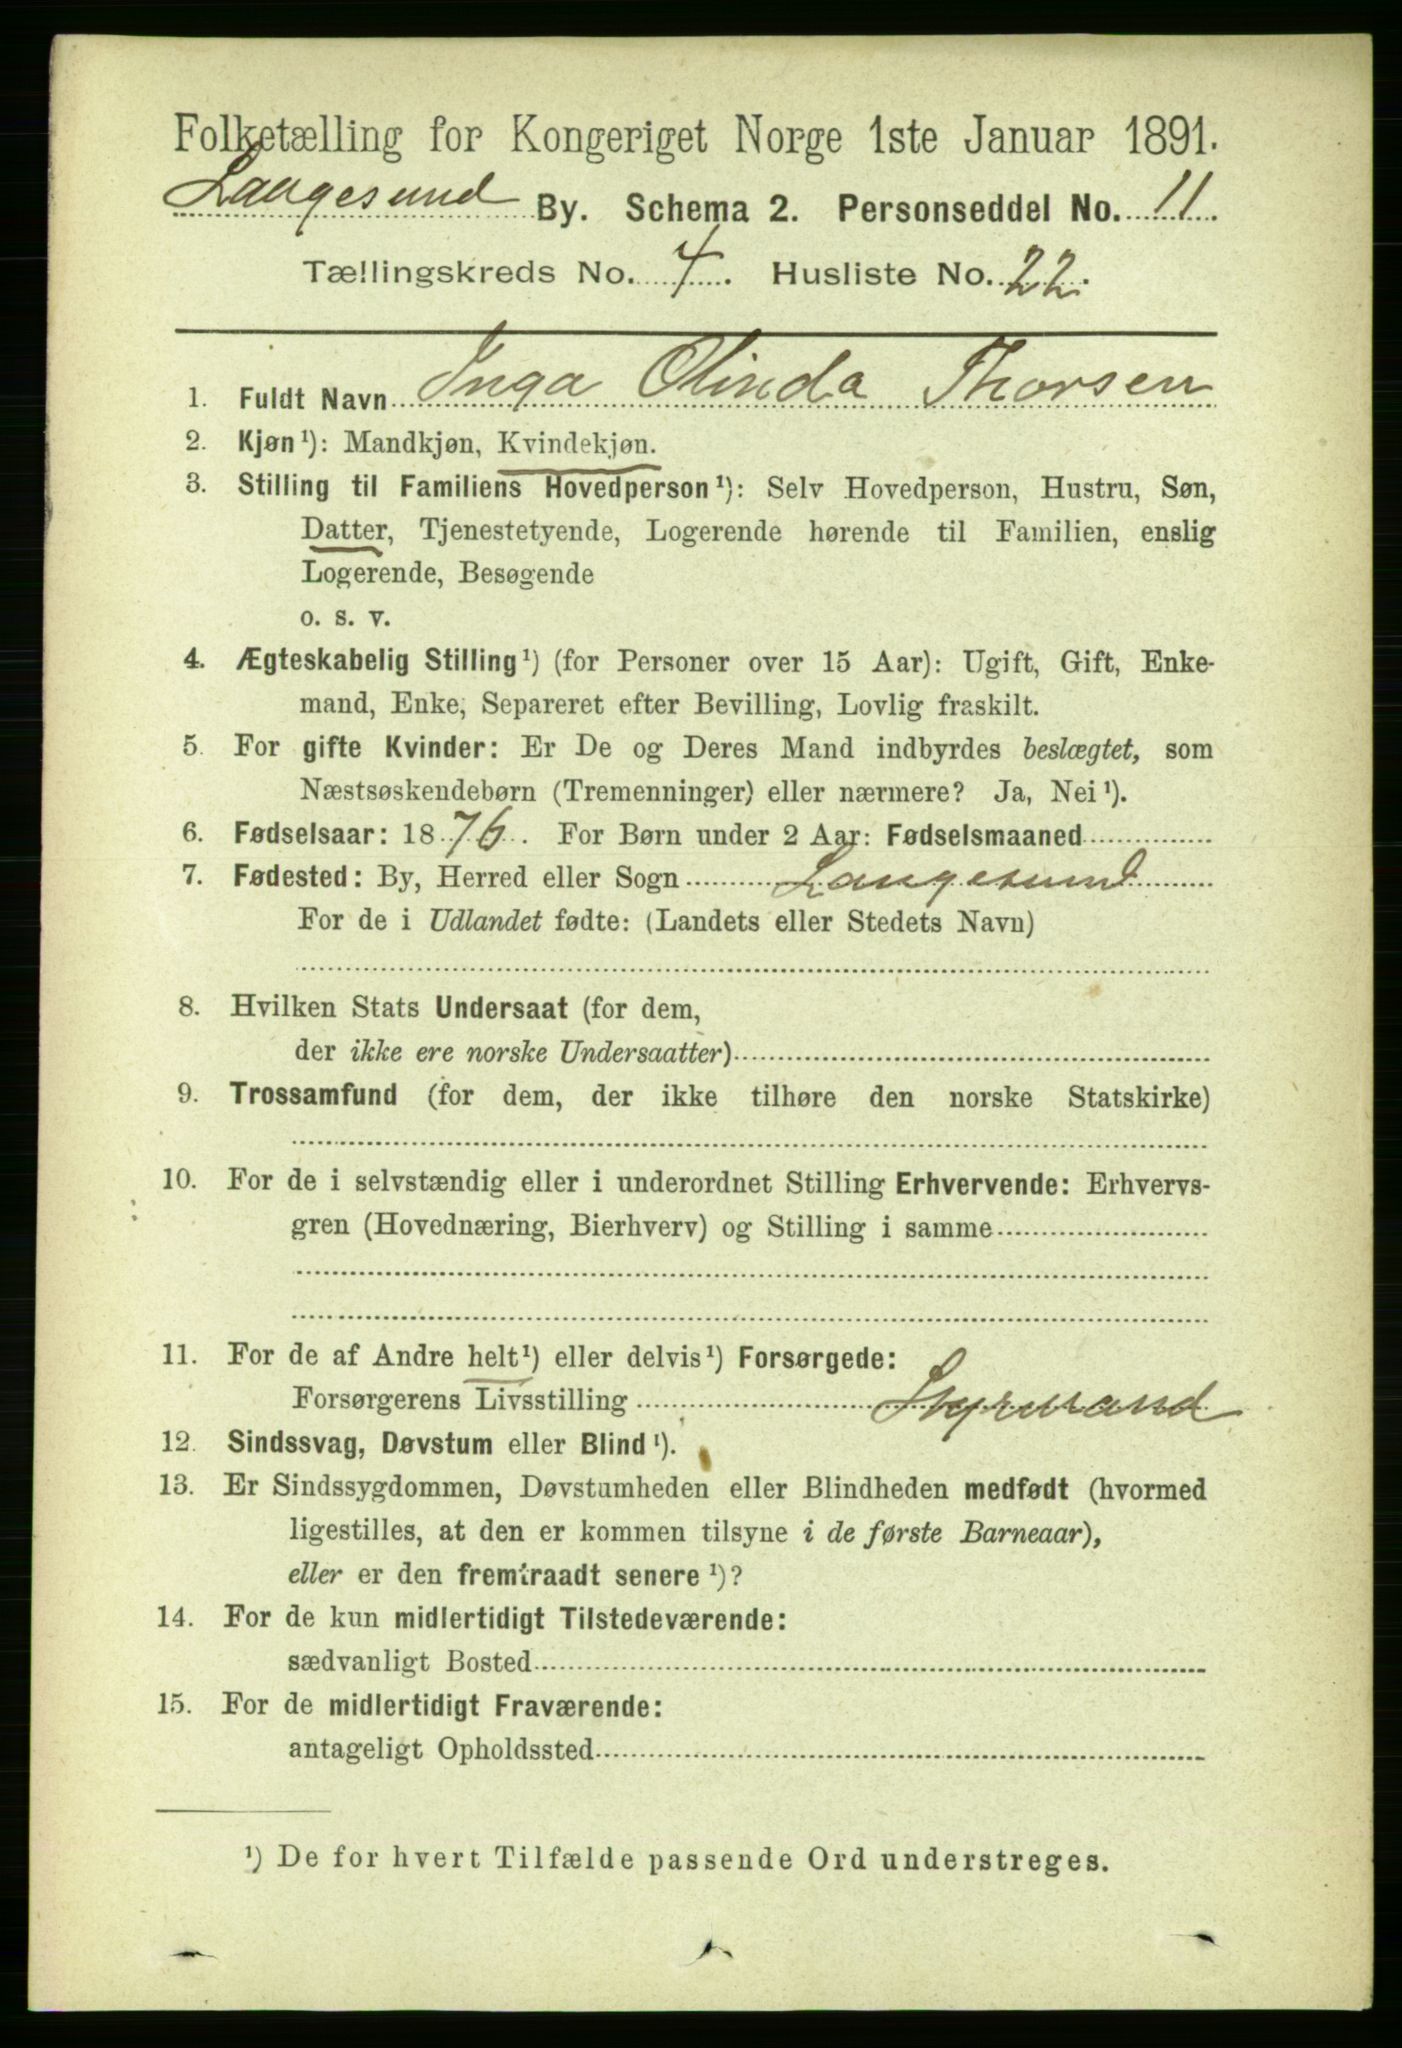 Folketælling for Kongeriget Norge 1ste Januar 1891.
Langesund By. Schema 2. Personseddel No. 11.
Tællingskreds No. 4. Husliste No. 22.
1. Fuldt Navn Inga Olinda Thorsen
2. Kjøn¹): Mandkjøn, Kvindekjøn.
3. Stilling til Familiens Hovedperson¹): Selv Hovedperson, Hustru, Søn,
Datter, Tjenestetyende, Logerende hørende til Familien, enslig
Logerende, Besøgende
o. s. v.
4. Ægteskabelig Stilling¹) (for Personer over 15 Aar): Ugift, Gift, Enke-
mand, Enke, Separeret efter Bevilling, Lovlig fraskilt.
5. For gifte Kvinder: Er De og Deres Mand indbyrdes beslægtet, som
Næstsøskendebørn (Tremenninger) eller nærmere? Ja, Nei¹).
6. Fødselsaar: 1876. For Børn under 2 Aar: Fødselsmaaned
7. Fødested: By, Herred eller Sogn Langesund
For de i Udlandet fødte: (Landets eller Stedets Navn)
8. Hvilken Stats Undersaat (for dem,
der ikke ere norske Undersaatter)
9. Trossamfund (for dem, der ikke tilhøre den norske Statskirke)
10. For de i selvstændig eller i underordnet Stilling Erhvervende: Erhvervs-
gren (Hovednæring, Bierhverv) og Stilling i samme
11. For de af Andre helt¹) eller delvis¹) Forsørgede:
Forsørgerens Livsstilling Styrmand
12. Sindssvag, Døvstum eller Blind¹).
13. Er Sindssygdommen, Døvstumheden eller Blindheden medfødt (hvormed
ligestilles, at den er kommen tilsyne i de første Barneaar),
eller er den fremtraadt senere¹)?
14. For de kun midlertidigt Tilstedeværende:
sædvanligt Bosted
15. For de midlertidigt Fraværende:
antageligt Opholdssted
¹) De for hvert Tilfælde passende Ord understreges.